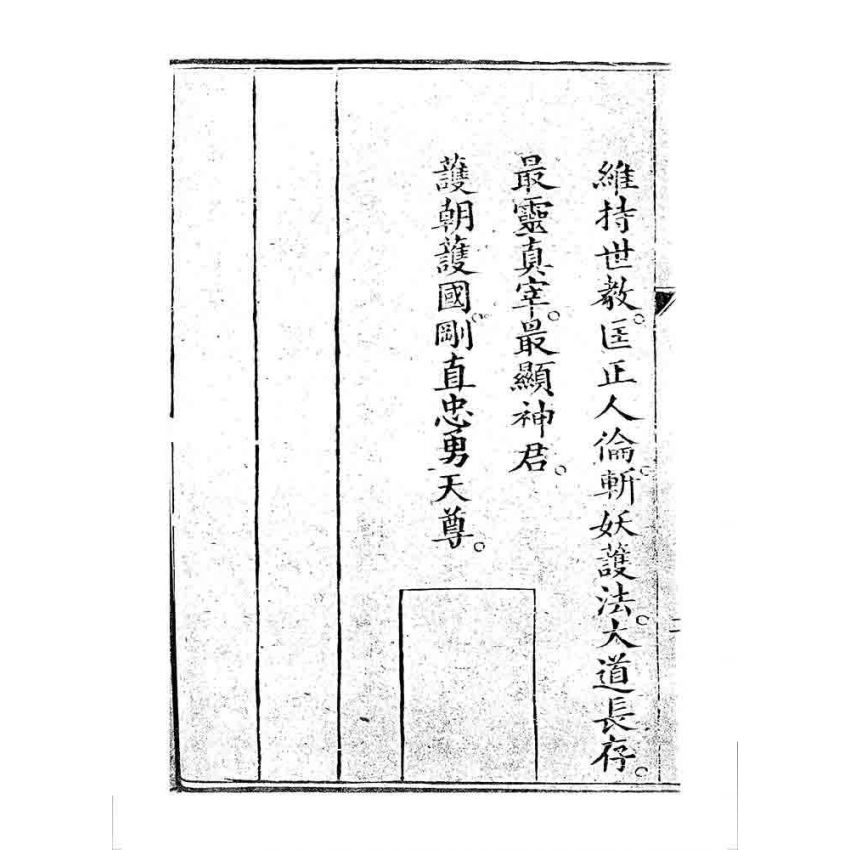 維持世教。匡正人倫。斬妖護法。大道長存。
最靈真宰。最顯神君。
護朝護國。剛直忠勇天尊。